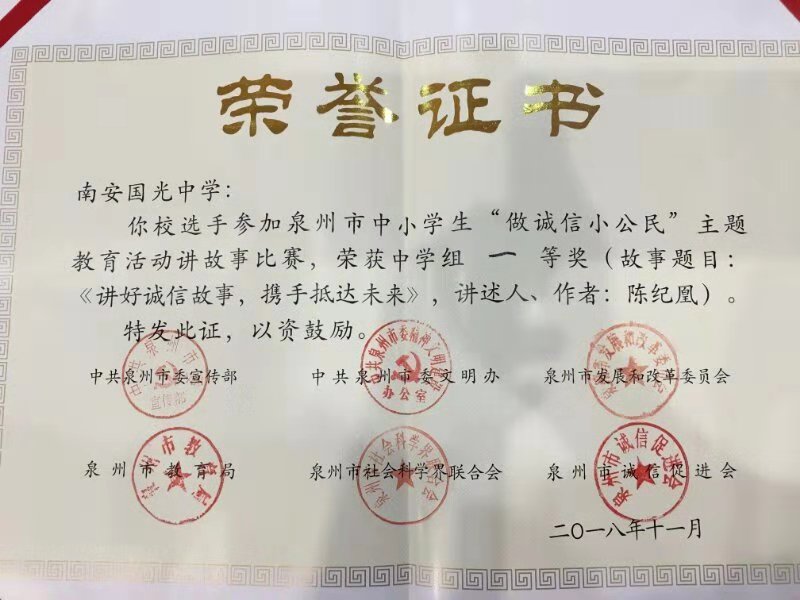 荣誉证书
南安国光中学：
你校选手参加泉州市中小学生“做诚信小公民”主题
教育活动讲故事比赛，荣获中学组 一 等奖（故事题目：
《讲好诚信故事，携手抵达未来》，讲述人、作者：陈纪凰）。
特发此证，以资鼓励。
中共泉州市委宣传部 中共泉州市委文明办 泉州市发展和改革委员会
泉州市教育局 泉州市社会科学界联合会 泉州市诚信促进会
二〇一八年十一月
中共泉州市
宣传部
办公室
泉州市诚信促进会